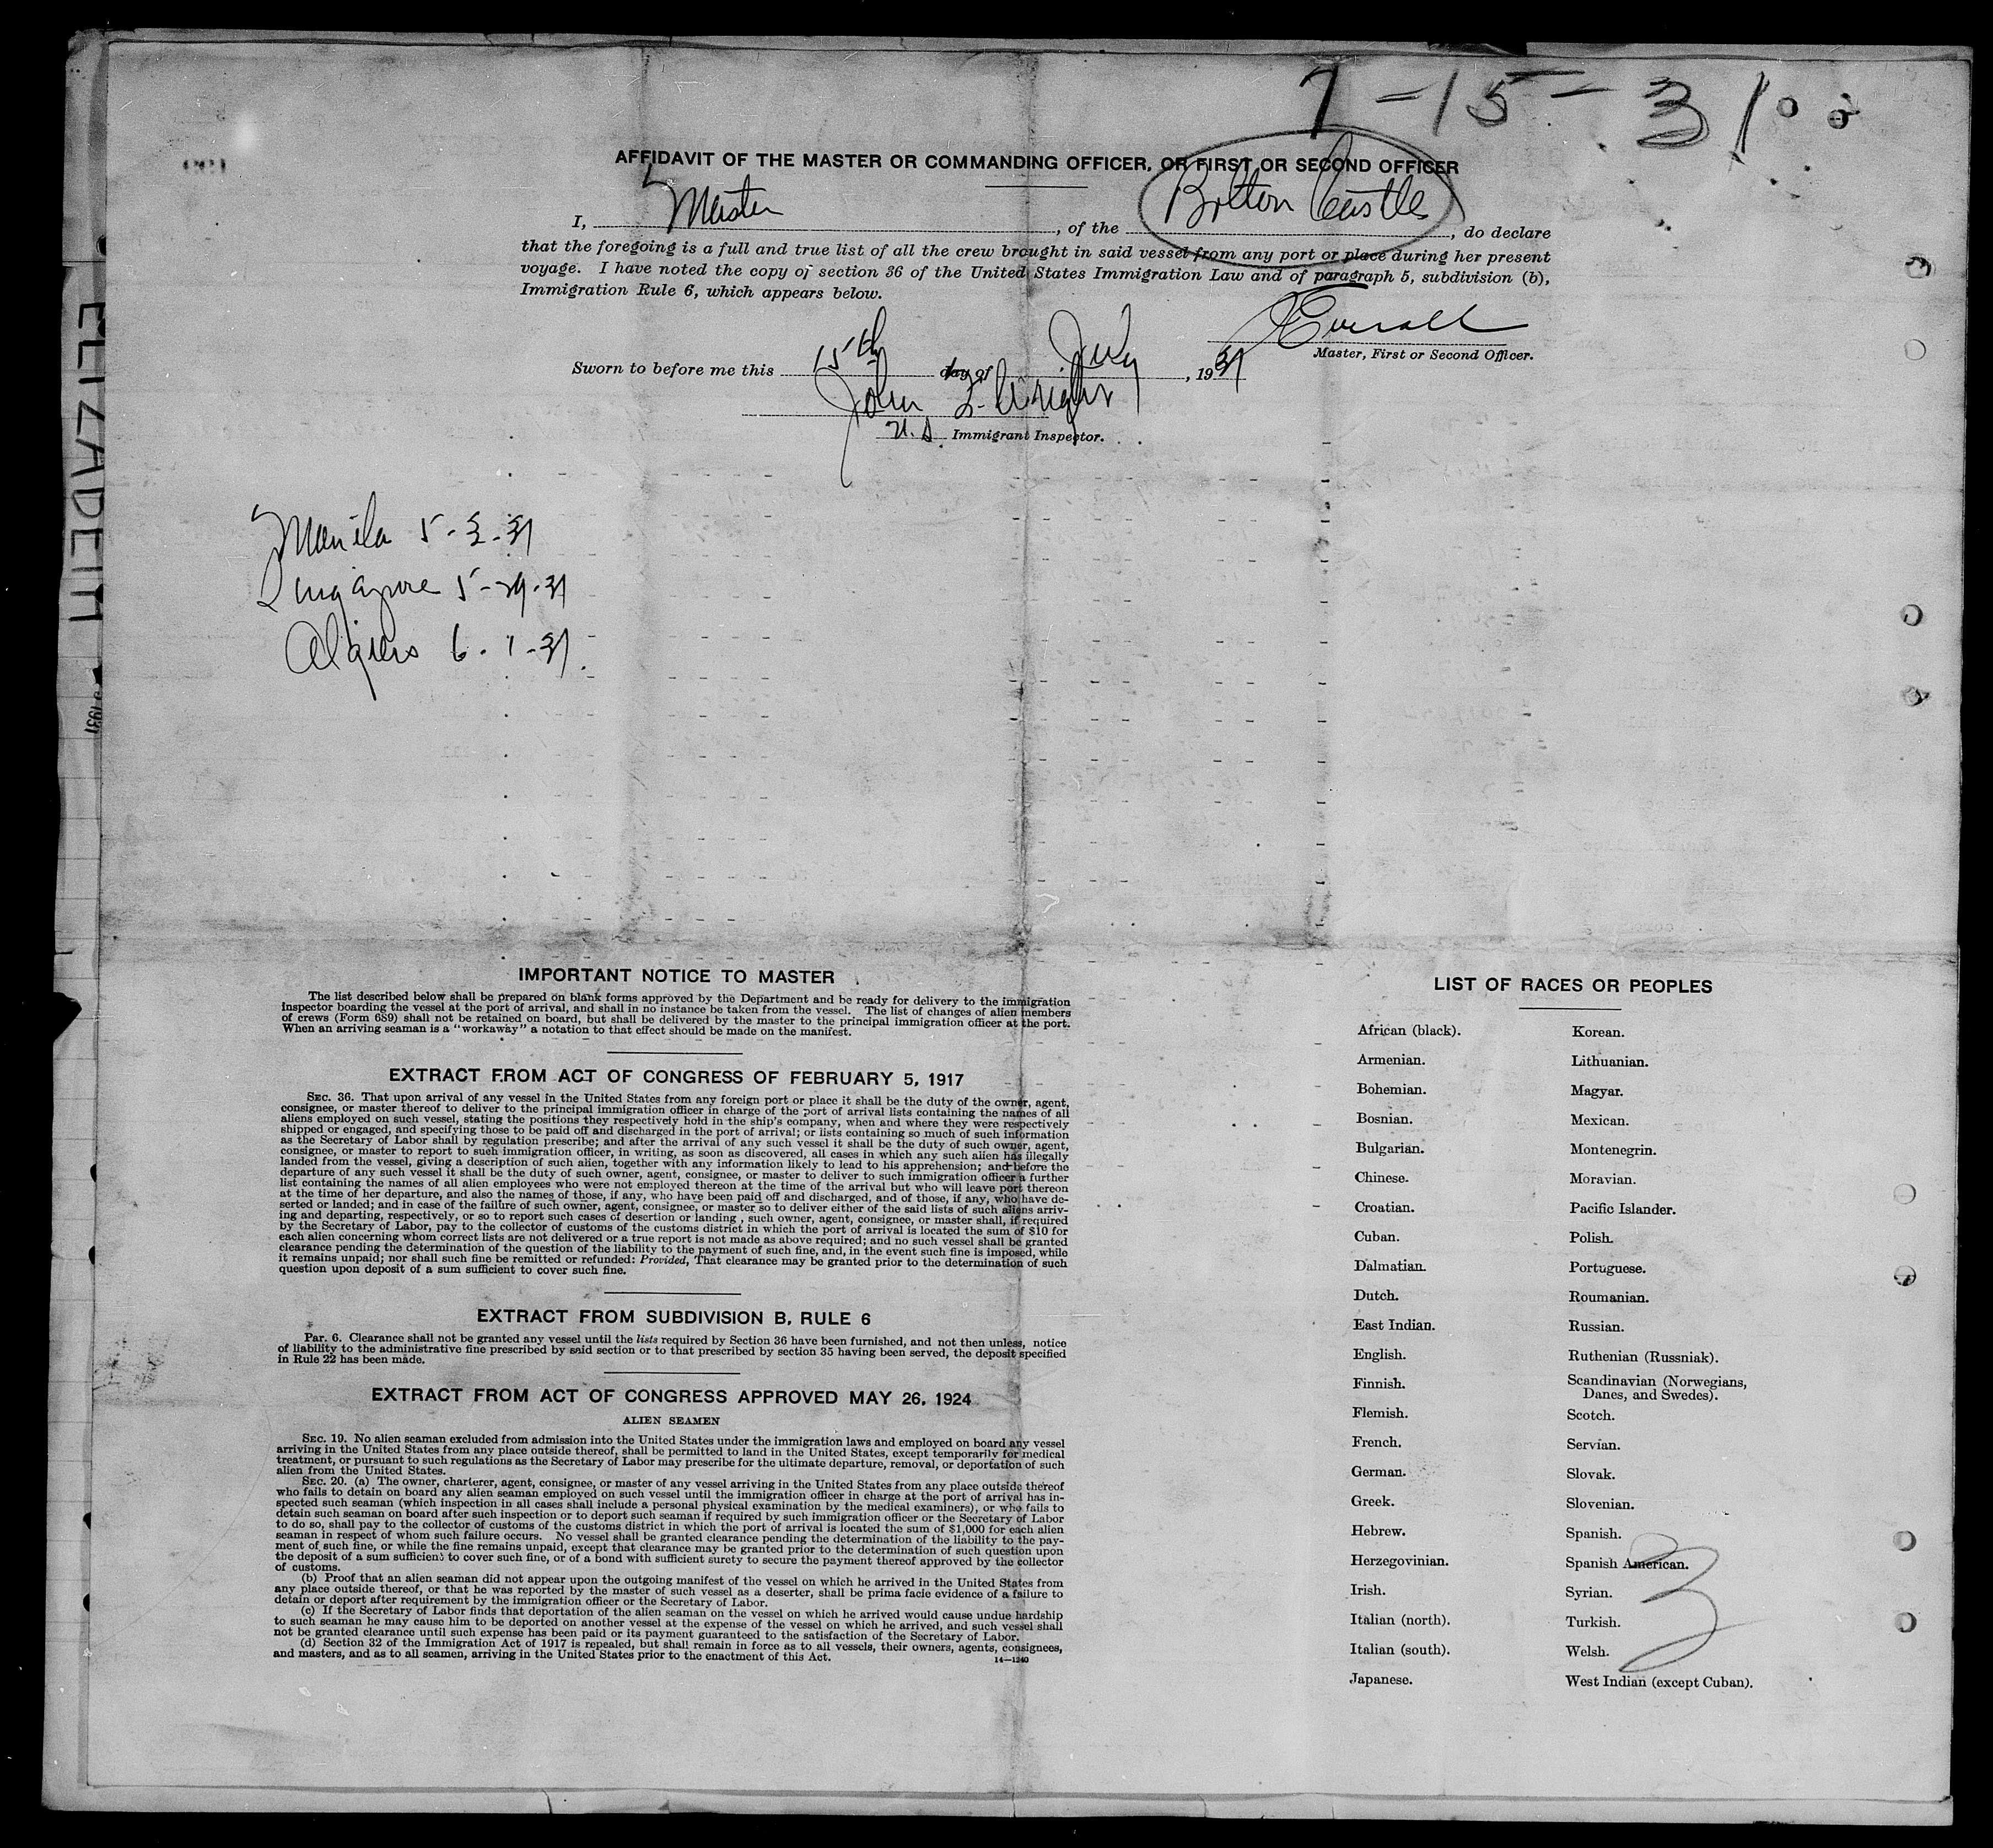 7-15-31
AFFIDAVIT OF THE MASTER OR COMMANDING OFFICER, OR FIRST OR SECOND OFFICER
I, Master, of the Bolton Castle, do declare
that the foregoing is a full and true list of all the crew brought in said vessel from any port or place during her present
voyage. I have noted the copy of section 36 of the United States Immigration Law and of paragraph 5, subdivision (b),
Immigration Rule 6, which appears below.
Master, First or Second Officer.
Sworn to before me this 15th day of July, 1931
John Wright
U.S. Immigrant Inspector.
Manila 5-3-31
Singapore 5-29-31
Algiers 6-1-31
ELIZABETH
1931
IMPORTANT NOTICE TO MASTER
The list described below shall be prepared on blank forms approved by the Department and be ready for delivery to the immigration
inspector boarding the vessel at the port of arrival, and shall in no instance be taken from the vessel. The list of changes of alien members
of crews (Form 689) shall not be retained on board, but shall be delivered by the master to the principal immigration officer at the port.
When an arriving seaman is a "workaway" a notation to that effect should be made on the manifest.
EXTRACT FROM ACT OF CONGRESS OF FEBRUARY 5, 1917
SEC. 36. That upon arrival of any vessel in the United States from any foreign port or place it shall be the duty of the owner, agent,
consignee, or master thereof to deliver to the principal immigration officer in charge of the port of arrival lists containing the names of all
aliens employed on such vessel, stating the positions they respectively hold in the ship's company, when and where they were respectively
shipped or engaged, and specifying those to be paid off and discharged in the port of arrival; or lists containing so much of such information
as the Secretary of Labor shall by regulation prescribe; and after the arrival of any such vessel it shall be the duty of such owner, agent,
consignee, or master to report to such immigration officer, in writing, as soon as discovered, all cases in which any such alien has illegally
landed from the vessel, giving a description of such alien, together with any information likely to lead to his apprehension; and before the
departure of any such vessel it shall be the duty of such owner, agent, consignee, or master to deliver to such immigration officer a further
list containing the names of all alien employees who were not employed thereon at the time of the arrival but who will leave port thereon
at the time of her departure, and also the names of those, if any, who have been paid off and discharged, and of those, if any, who have de-
serted or landed; and in case of the failure of such owner, agent, consignee, or master so to deliver either of the said lists of such aliens arriv-
ing and departing, respectively, or so to report such cases of desertion or landing, such owner, agent, consignee, or master shall, if required
by the Secretary of Labor, pay to the collector of customs of the customs district in which the port of arrival is located the sum of $10 for
each alien concerning whom correct lists are not delivered or a true report is not made as above required; and no such vessel shall be granted
clearance pending the determination of the question of the liability to the payment of such fine, and, in the event such fine is imposed, while
it remains unpaid; nor shall such fine be remitted or refunded: Provided, That clearance may be granted prior to the determination of such
question upon deposit of a sum sufficient to cover such fine.
EXTRACT FROM SUBDIVISION B, RULE 6
Par. 6. Clearance shall not be granted any vessel until the lists required by Section 36 have been furnished, and not then unless, notice
of liability to the administrative fine prescribed by said section or to that prescribed by section 35 having been served, the deposit specified
in Rule 22 has been made.
EXTRACT FROM ACT OF CONGRESS APPROVED MAY 26, 1924
ALIEN SEAMEN
SEC. 19. No alien seaman excluded from admission into the United States under the immigration laws and employed on board any vessel
arriving in the United States from any place outside thereof, shall be permitted to land in the United States, except temporarily for medical
treatment, or pursuant to such regulations as the Secretary of Labor may prescribe for the ultimate departure, removal, or deportation of such
alien from the United States.
SEC. 20. (a) The owner, charterer, agent, consignee, or master of any vessel arriving in the United States from any place outside thereof
who fails to detain on board any alien seaman employed on such vessel until the immigration officer in charge at the port of arrival has in-
spected such seaman (which inspection in all cases shall include a personal physical examination by the medical examiners), or who fails to
detain such seaman on board after such inspection or to deport such seaman if required by such immigration officer or the Secretary of Labor
to do so, shall pay to the collector of customs of the customs district in which the port of arrival is located the sum of $1,000 for each alien
seaman in respect of whom such failure occurs. No vessel shall be granted clearance pending the determination of the liability to the pay-
ment of such fine, or while the fine remains unpaid, except that clearance may be granted prior to the determination of such question upon
the deposit of a sum sufficient to cover such fine, or of a bond with sufficient surety to secure the payment thereof approved by the collector
of customs.
(b) Proof that an alien seaman did not appear upon the outgoing manifest of the vessel on which he arrived in the United States from
any place outside thereof, or that he was reported by the master of such vessel as a deserter, shall be prima facie evidence of a failure to
detain or deport after requirement by the immigration officer or the Secretary of Labor.
(c) If the Secretary of Labor finds that deportation of the alien seaman on the vessel on which he arrived would cause undue hardship
to such seaman he may cause him to be deported on another vessel at the expense of the vessel on which he arrived, and such vessel shall
not be granted clearance until such expense has been paid or its payment guaranteed to the satisfaction of the Secretary of Labor.
(d) Section 32 of the Immigration Act of 1917 is repealed, but shall remain in force as to all vessels, their owners, agents, consignees,
and masters, and as to all seamen, arriving in the United States prior to the enactment of this Act.
14—1240
LIST OF RACES OR PEOPLES
African (black).
Armenian.
Bohemian.
Bosnian.
Bulgarian.
Chinese.
Croatian.
Cuban.
Dalmatian.
Dutch.
East Indian.
English.
Finnish.
Flemish.
French.
German.
Greek.
Hebrew.
Herzegovinian.
Irish.
Italian (north).
Italian (south).
Japanese.
Korean.
Lithuanian.
Magyar.
Mexican.
Montenegrin.
Moravian.
Pacific Islander.
Polish.
Portuguese.
Roumanian.
Russian.
Ruthenian (Russniak).
Scandinavian (Norwegians,
Danes, and Swedes).
Scotch.
Servian.
Slovak.
Slovenian.
Spanish.
Spanish American.
Syrian.
Turkish.
Welsh.
West Indian (except Cuban).
3